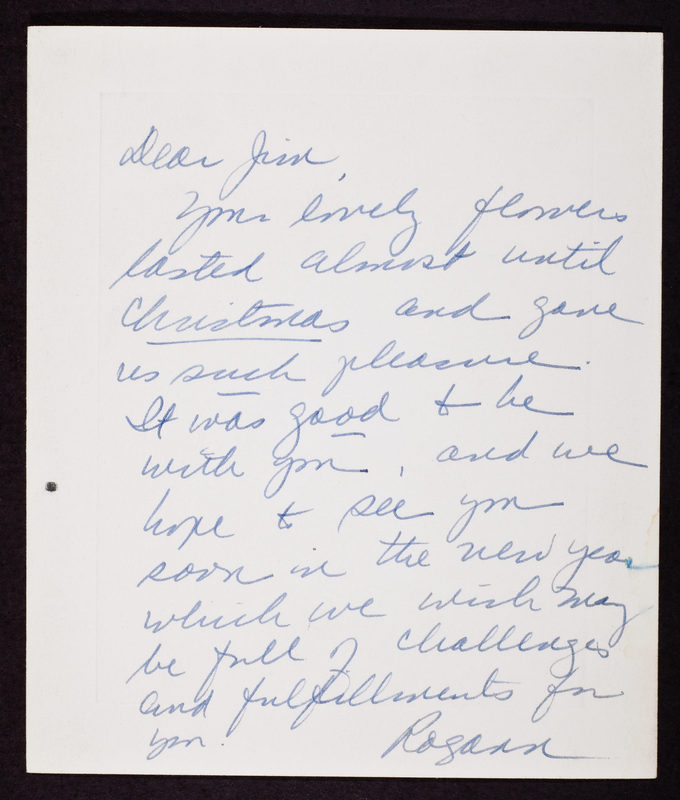 Dear Jim,
Your lovely flowers
lasted almost until
Christmas and gave
us such pleasure.
It was good to be
with you, and we
hope to see you
soon in the new year
which we wish may
be full of challenges
and fulfillments for
you. Roxann